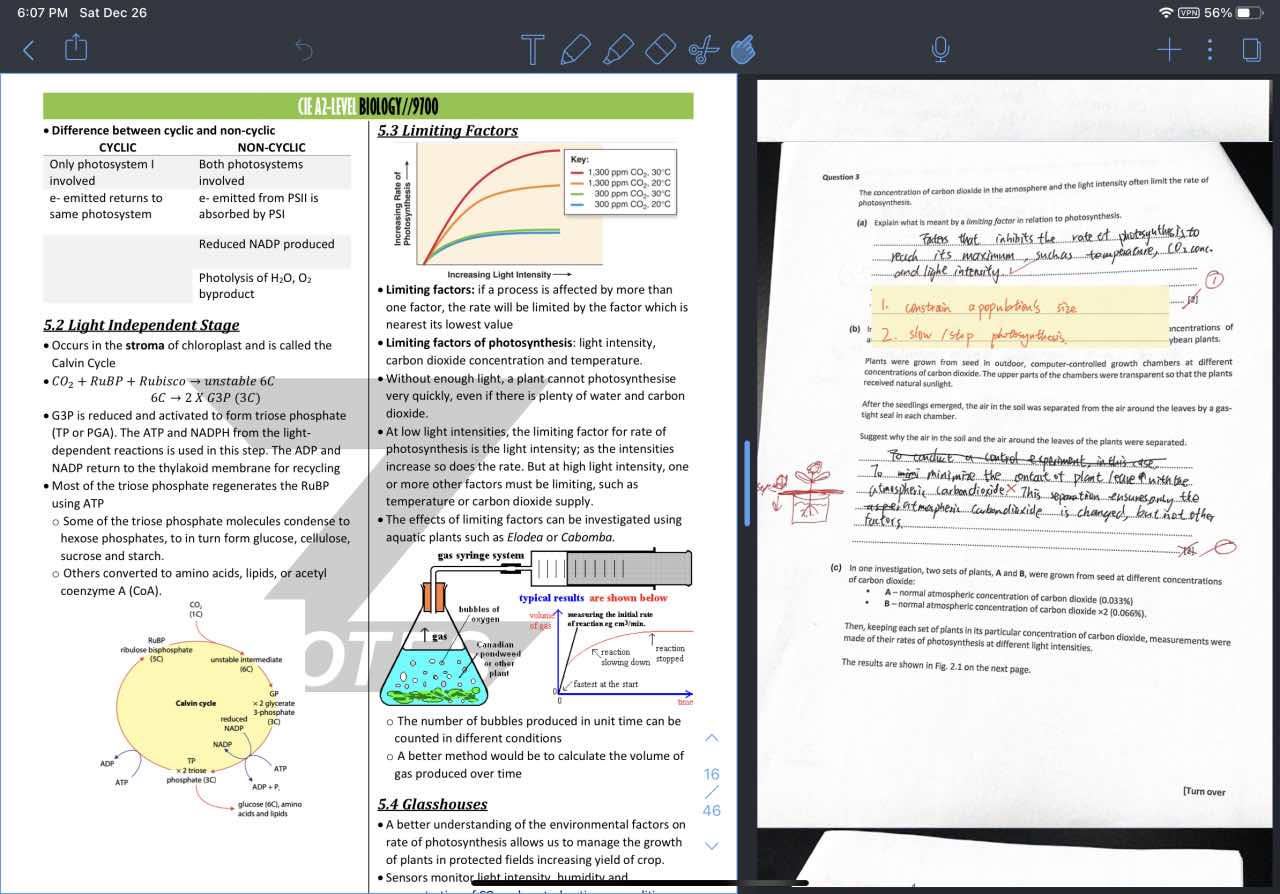 6:07 PM Sat Dec 26
VPN 56%
CIE A2-LEVEL BIOLOGY//9700
• Difference between cyclic and non-cyclic
CYCLIC NON-CYCLIC
Only photosystem I Both photosystems
involved involved
e- emitted returns to e- emitted from PSII is
same photosystem absorbed by PSI
Reduced NADP produced
Photolysis of H₂O, O₂
byproduct
5.2 Light Independent Stage
• Occurs in the stroma of chloroplast and is called the
Calvin Cycle
• CO₂ + RuBP + Rubisco → unstable 6C
6C → 2 X G3P (3C)
• G3P is reduced and activated to form triose phosphate
(TP or PGA). The ATP and NADPH from the light-
dependent reactions is used in this step. The ADP and
NADP return to the thylakoid membrane for recycling
• Most of the triose phosphate regenerates the RuBP
using ATP
o Some of the triose phosphate molecules condense to
hexose phosphates, to in turn form glucose, cellulose,
sucrose and starch.
o Others converted to amino acids, lipids, or acetyl
coenzyme A (CoA).
CO₂
(1C)
RuBP
ribulose bisphosphate
(5C)
unstable intermediate
(6C)
Calvin cycle
GP
× 2 glycerate
3-phosphate
(3C)
reduced
NADP
NADP
TP
× 2 triose
phosphate (3C)
ADP
ATP
ATP
ADP + Pᵢ
glucose (6C), amino
acids and lipids
5.3 Limiting Factors
Increasing Rate of
Photosynthesis
Key:
1,300 ppm CO₂, 30°C
1,300 ppm CO₂, 20°C
300 ppm CO₂, 30°C
300 ppm CO₂, 20°C
Increasing Light Intensity
• Limiting factors: if a process is affected by more than
one factor, the rate will be limited by the factor which is
nearest its lowest value
• Limiting factors of photosynthesis: light intensity,
carbon dioxide concentration and temperature.
• Without enough light, a plant cannot photosynthesise
very quickly, even if there is plenty of water and carbon
dioxide.
• At low light intensities, the limiting factor for rate of
photosynthesis is the light intensity; as the intensities
increase so does the rate. But at high light intensity, one
or more factors must be limiting, such as
temperature or carbon dioxide supply.
• The effects of limiting factors can be investigated using
aquatic plants such as Elodea or Cabomba.
gas syringe system
typical results are shown below
bubbles of
oxygen
gas
Canadian
pondweed
or other
plant
volume
of gas
measuring the initial rate
of reaction eg cm³/min.
reaction
slowing down
reaction
stopped
fastest at the start
0
0
time
o The number of bubbles produced in unit time can be
counted in different conditions
o A better method would be to calculate the volume of
gas produced over time
5.4 Glasshouses
• A better understanding of the environmental factors on
rate of photosynthesis allows us to manage the growth
of plants in protected fields increasing yield of crop.
• Sensors monitor light intensity, humidity and
16
46
Question 3
The concentration of carbon dioxide in the atmosphere and the light intensity often limit the rate of
photosynthesis.
(a) Explain what is meant by a limiting factor in relation to photosynthesis.
Factors that inhibits the rate of photosynthesis to
reach its maximum, such as temperature, CO₂ conc.
and light intensity.
1
[2]
1. constrain a population's size
2. slow / stop photosynthesis.
(b)
ncentrations of
ybean plants.
Plants were grown from seed in outdoor, computer-controlled growth chambers at different
concentrations of carbon dioxide. The upper parts of the chambers were transparent so that the plants
received natural sunlight.
After the seedlings emerged, the air in the soil was separated from the air around the leaves by a gas-
tight seal in each chamber.
Suggest why the air in the soil and the air around the leaves of the plants were separated.
To conduct a control experiment, in this case
To mimi minimize the contact of plant leave with the
atmospheric carbondioxide This separation ensures only the
atmospheric Carbondioxide is changed, but not other
factors.
[2]
(c) In one investigation, two sets of plants, A and B, were grown from seed at different concentrations
of carbon dioxide:
• A – normal atmospheric concentration of carbon dioxide (0.033%)
• B – normal atmospheric concentration of carbon dioxide ×2 (0.066%).
Then, keeping each set of plants in its particular concentration of carbon dioxide, measurements were
made of their rates of photosynthesis at different light intensities.
The results are shown in Fig. 2.1 on the next page.
[Turn over